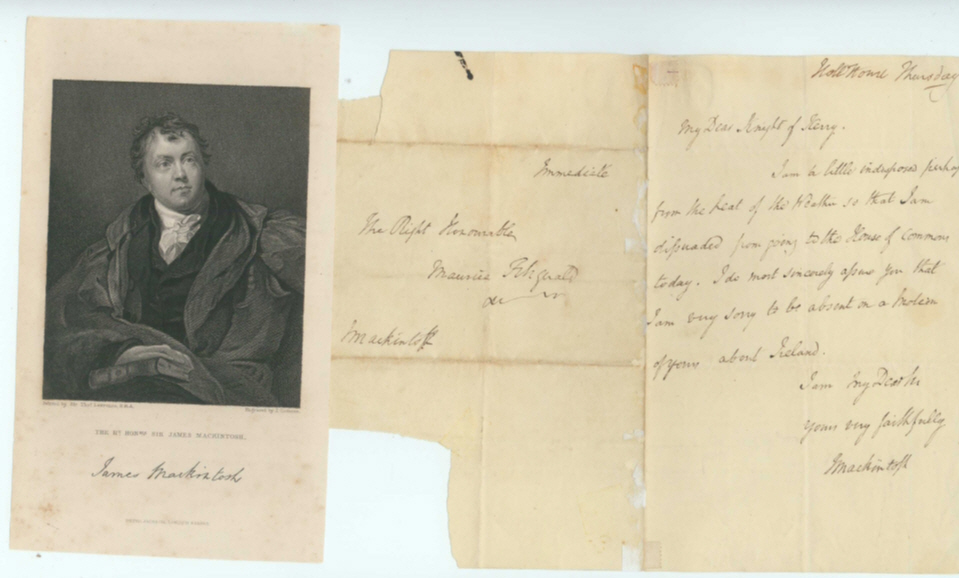 Painted by Sir Thos. Lawrence, P.R.A.
Engraved by
THE RT. HONBLE. SIR JAMES MACKINTOSH.
James Mackintosh
Immediate
The Right Honourable
Maurice Fitzgerald
JMackintosh
Thursday
My Dear Knight of Kerry.
I am a little indisposed perhaps
from the heat of the Weather so that I am
dissuaded from going to the House of Commons
today. I do most sincerely assure you that
I am very sorry to be absent on a Motion
of yours about Ireland.
I am My Dear Sir
Yours very faithfully
JMackintosh